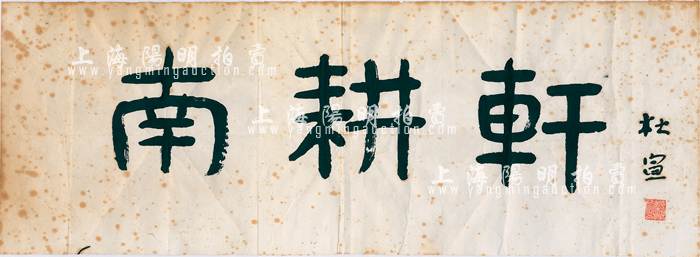 南耕軒
杜宣
上海陽明拍賣
www.yangmingauction.com
上海陽明拍賣
www.yangmingauction.com
上海陽明拍賣
www.yangmingauction.com